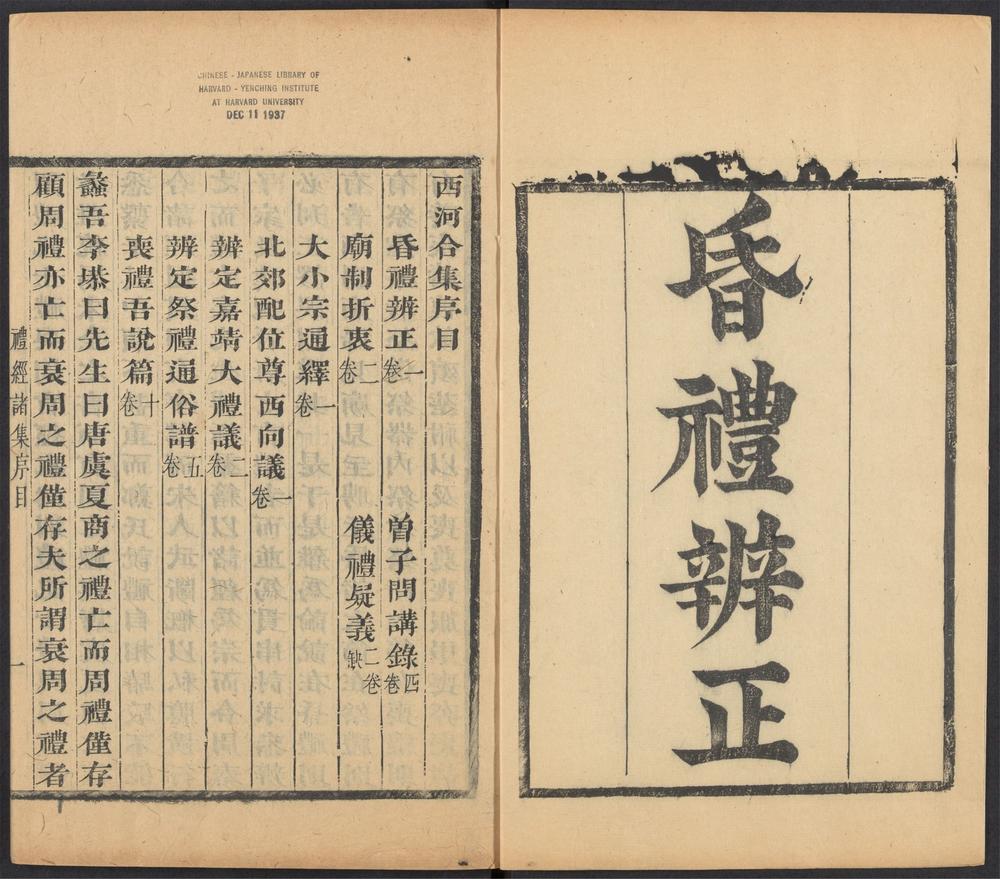 昏禮辨正
CHINESE - JAPANESE LIBRARY OF
HARVARD - YENCHING INSTITUTE
AT HARVARD UNIVERSITY
DEC 11 1937
西河合集序目
昏禮辨正一卷 曾子問講錄四卷
廟制折衷二卷 儀禮疑義二卷缺
大小宗通繹一卷
北郊配位尊西向議一卷
辨定嘉靖大禮議二卷
辨定祭禮通俗譜五卷
喪禮吾說篇十卷
蠡吾李塨曰先生曰唐虞夏商之禮亡而周禮僅存
顧周禮亦亡而衰周之禮僅存夫所謂衰周之禮者
禮經諸集序目 一